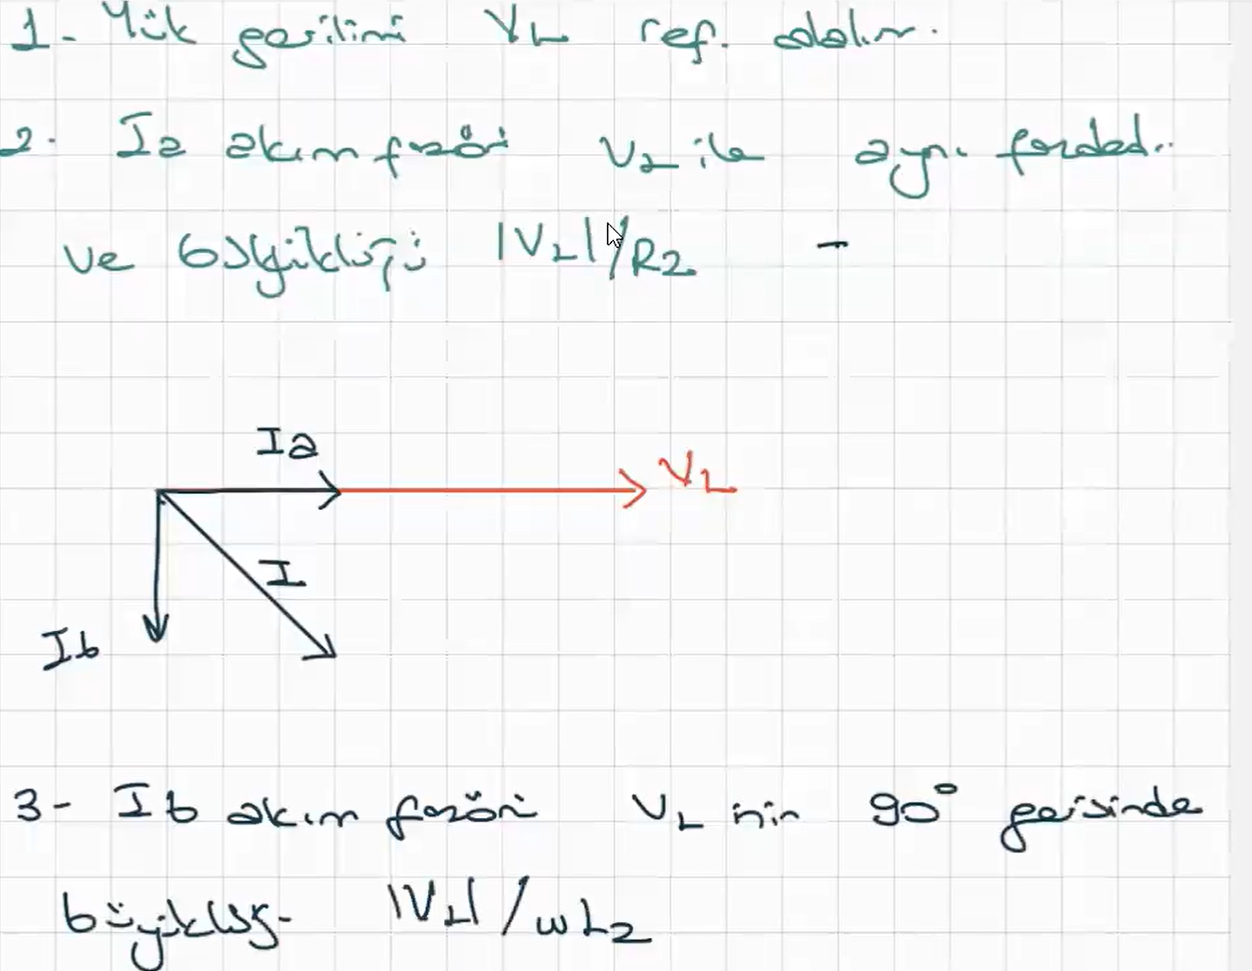 1- Yük gerilimi VL ref. alalım.
2. Ia akım fazörü VL ile aynı fazdadır.
ve büyüklüğü |VL|/R2 -
Ia
VL
I
Ib
3- Ib akım fazörü VL nin 90° gerisinde
büyüklüğ- |VL| / wL2